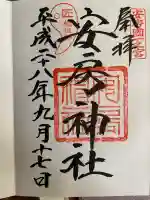 奉拝
安房神社
平成二十八年九月十七日